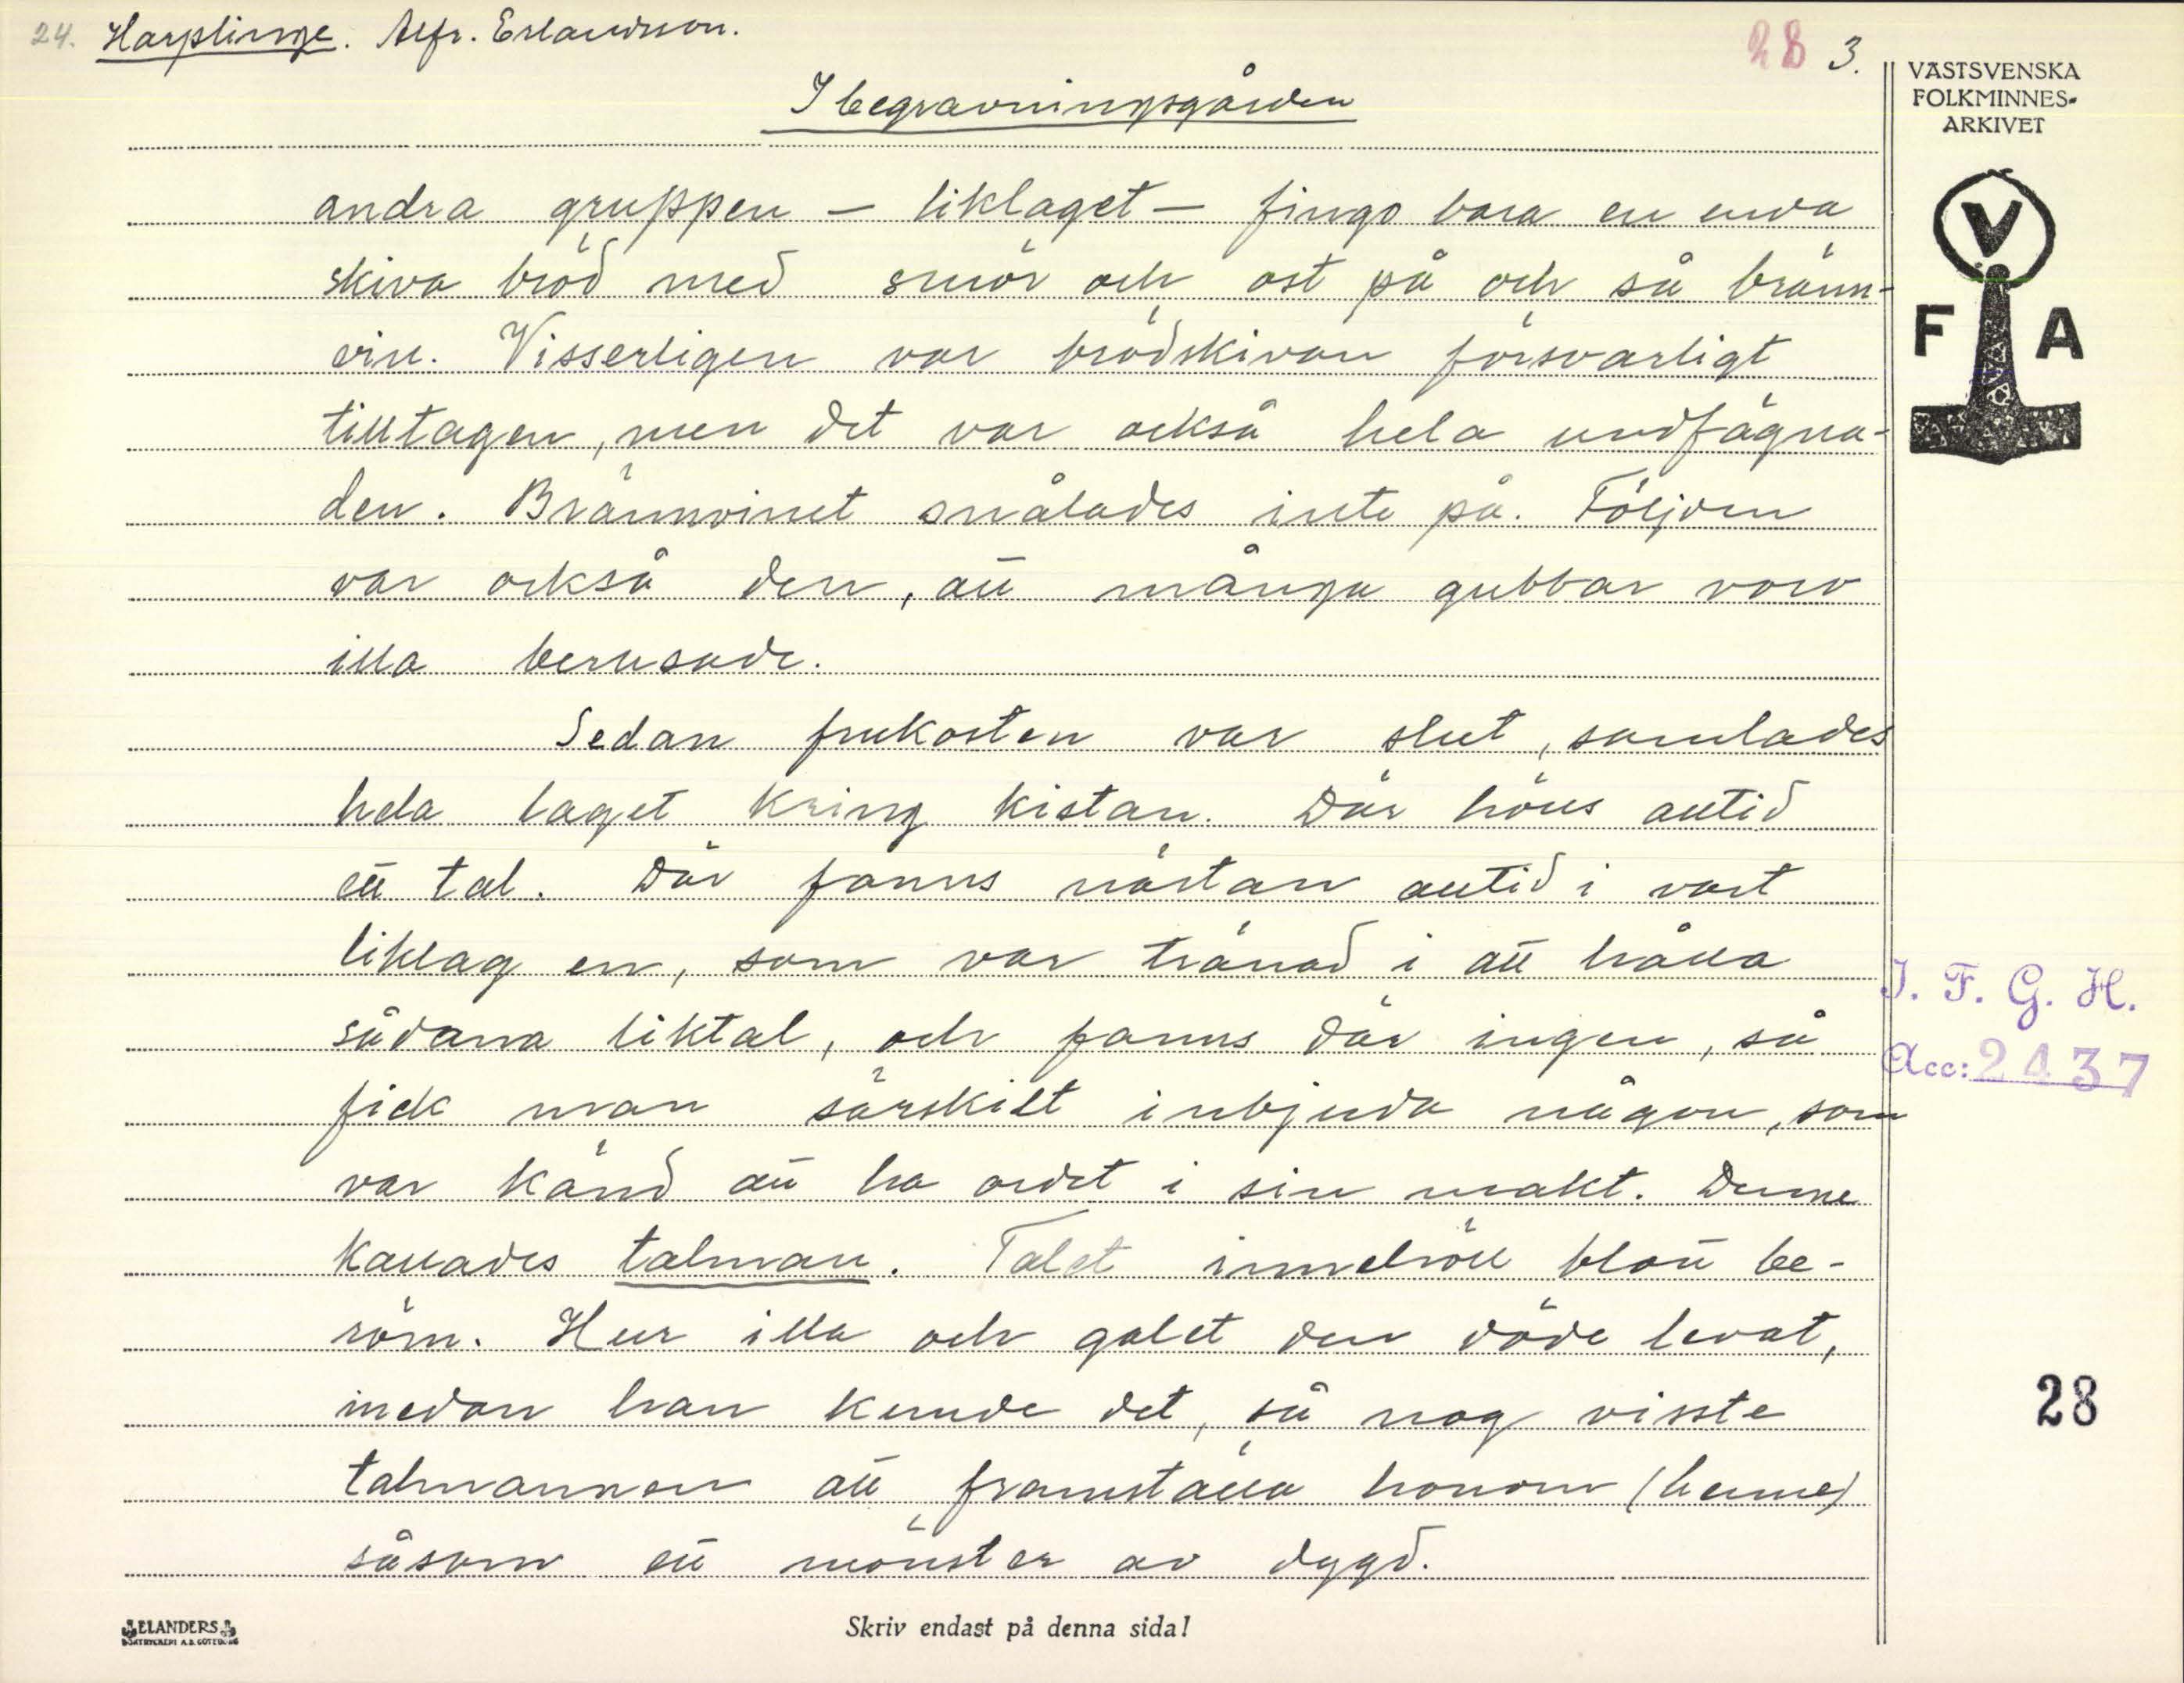 24. Harplinge. Alfr. Erlandsson.
28 3.
VÄSTSVENSKA
FOLKMINNES-
ARKIVET
V
F A
I begravningsgården
andra gruppen – liklaget – fingo bara en enda
skiva bröd med smör och ost på och så bränn-
vin. Visserligen var brödskivan försvarligt
tilltagen, men det var också hela undfägna-
den. Brännvinet snålades inte på. Följden
var också den, att många gubbar voro
illa berusade.
Sedan frukosten var slut, samlades
hela laget kring kistan. Där hölls alltid
ett tal. Där fanns nästan alltid i vart
liklag en, som var tränad i att hålla
sådana liktal, och fanns där ingen, så
fick man särskilt inbjuda någon, som
var känd att ha ordet i sin makt. Denne
kallades talman. Talet innehöll blott be-
röm. Hur illa och galet den döde levat,
medan han kunde det, så nog visste
talmannen att framställa honom (henne)
såsom ett mönster av dygd.
I. F. G. H.
Acc: 2437
28
ELANDERS
BOKTRYCKERI A.B. GÖTEBORG
Skriv endast på denna sida!